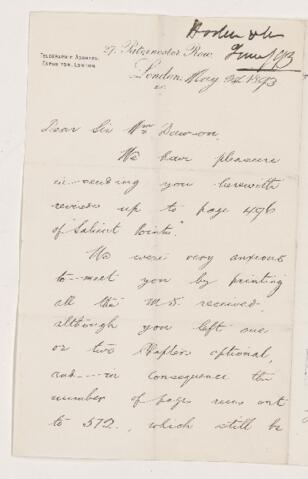 Hodder & Co
June/93
27, Paternoster Row,
TELEGRAPHIC ADDRESS,
EXPOSITOR, LONDON.
London, May 1893
Dear Sir Wm Dawson,
We have pleasure
in sending you herewith
revises up to page 496
of "Salient Points."
We were very anxious
to meet you by printing
all the M.S. received,
although you left one
or two Chapters optional,
and in consequence the
number of pages runs out
to 572, which will be